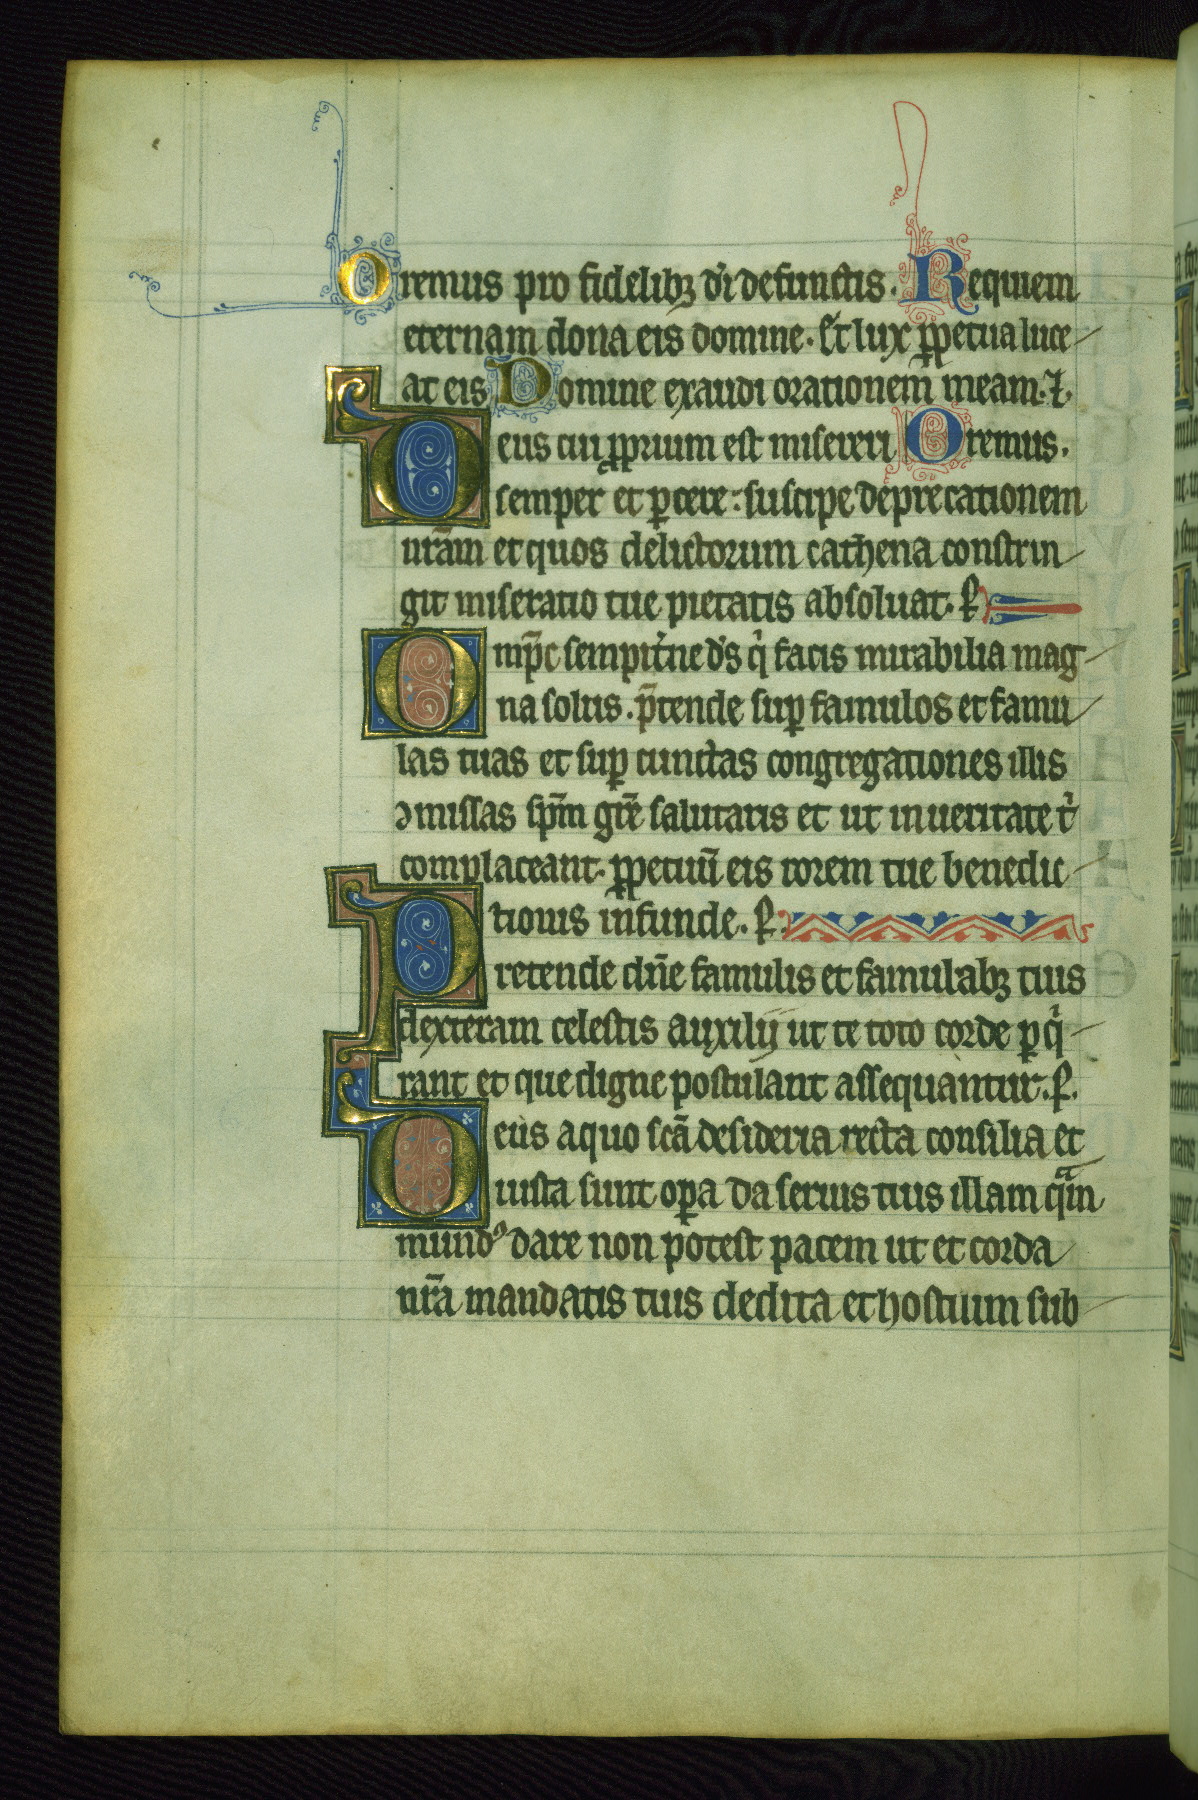 Oremus pro fidelibꝫ dĩ defunctis. Requiem
eternam dona eis domine. Et lux ꝑpetua luce
at eis Domine exaudi orationem meam. ⁊.
Deus cui ꝓprium est misereri Oremus.
semper et ꝑcere: suscipe deprecationem
nr̃am et quos delictorum cathena constrin
git miseratio tue pietatis absoluat. ꝑ
Omp̃s sempit̾ne ds̃ qͥ facis mirabilia mag
na solus. p̃tende suꝑ famulos et famu
las tuas et suꝑ cunctas congregationes illis
ꝯmissas sp̃m gr̃e salutaris et ut in ueritate tͥ
complaceant. ꝑpetuũ eis rorem tue benedic
tionis infunde. ꝑ.
Pretende dñe famulis et famulabꝫ tuis
dexteram celestis auxilij ut te toto corde ꝑqͥ
rant et que digne postulant assequantur. ꝑ.
Deus a quo scã desideria recta consilia et
iusta sunt oꝑa da seruis tuis illam qᵃm
mundꝰ dare non potest pacem ut et corda
nr̃a mandatis tuis dedita et hostium sub